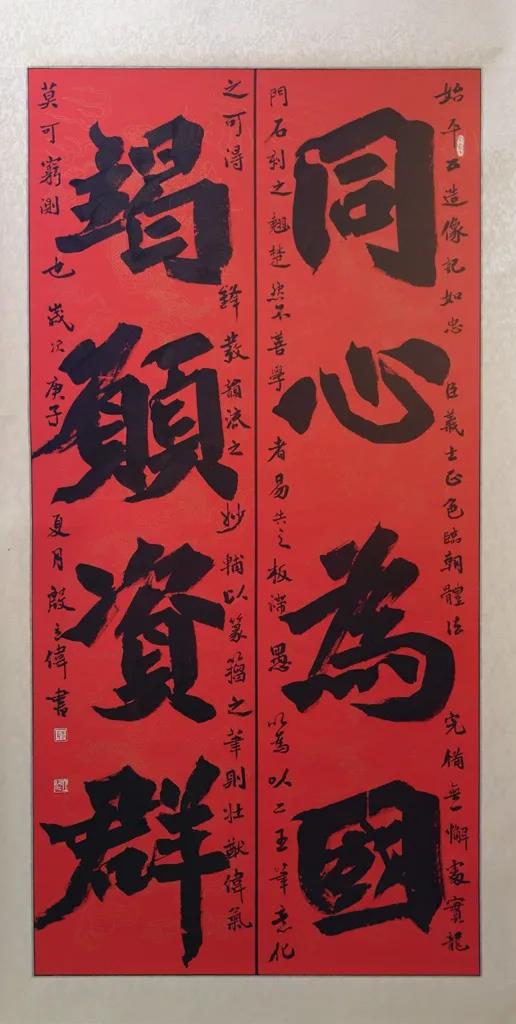 始平公造像記如忠臣義士正色臨朝體法完備無一懈處實龍
同心為國
門石刻之翹楚然不善學者易失之板滯愚以為以二王筆意化
之可得鋒發韻流之妙輔以篆籀之筆則壯猷偉氣
竭願資群
莫可窮測也歲次庚子夏月殷偉書